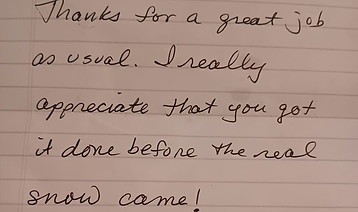 Thanks for a great job
as usual. I really
appreciate that you got
it done before the real
snow came!